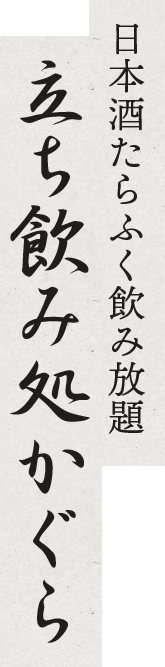 日本酒たらふく飲み放題
立ち飲み処かぐら